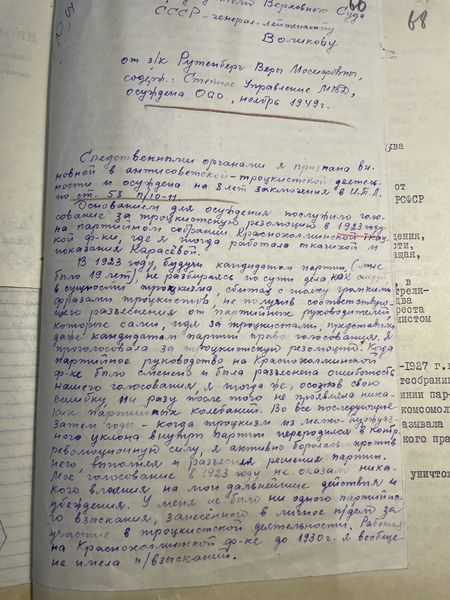 Верховного Суда
СССР - генерал-лейтенанту
Воликову
60
68
от з/к Рутенберг Веры Иосифовны,
содерж.: Степное Управление МВД,
осуждена ОСО, ноябрь 1949г.
Следственными органами я признана ви-
новной в антисоветской-троцкистской деятель-
ности и осуждена на 8 лет заключения в И.Т.Л.
по ст. 58 п/10-11
Основанием для осуждения послужило голо-
сование за троцкистскую резолюцию в 1923 году
на партийном собрании Краснохолмской ткац-
кой ф-ке, где я тогда работала ткачихой и
показания Карасёвой.
В 1923 году, будучи кандидатом партии, (мне
было 19 лет), не разбираясь по сути дела
в сущности троцкизма, сбитая с толку громкими
фразами троцкистов, не получив соответствую-
щего разъяснения от партийных руководителей,
которые сами, идя за троцкистами, представили
даже кандидатам партии право голосования, я
проголосовала за троцкистскую резолюцию. Когда
партийное руководство на Краснохолмской
ф-ке было сменено и была разъяснена ошибочность
нашего голосования я тогда же, осознав свою
ошибку ни разу после того не проявляла ника-
ких партийных колебаний. Во все последующие
затем годы - когда троцкизм из мелко-буржуаз-
ного уклона внутри партии переродился в контр-
революционную силу, я активно боролась против
него, выполняя и разъясняя решения партии.
Моё голосование в 1923 году не оказало ника-
кого влияния на мои дальнейшие действия и
убеждения. У меня не было ни одного партийно-
го взыскания, занесённого в личное п/дело за
участие в троцкистской деятельности. Работая
на Краснохолмской ф-ке до 1930г. я вообще
не имела п/взысканий.
от
РСФСР
дения,
сти,
щая,
, в
треля-
два
реста
нистом
-1927 г.г
тсобрании
инии пар-
комсомол
азывала
кого пра
уничтож